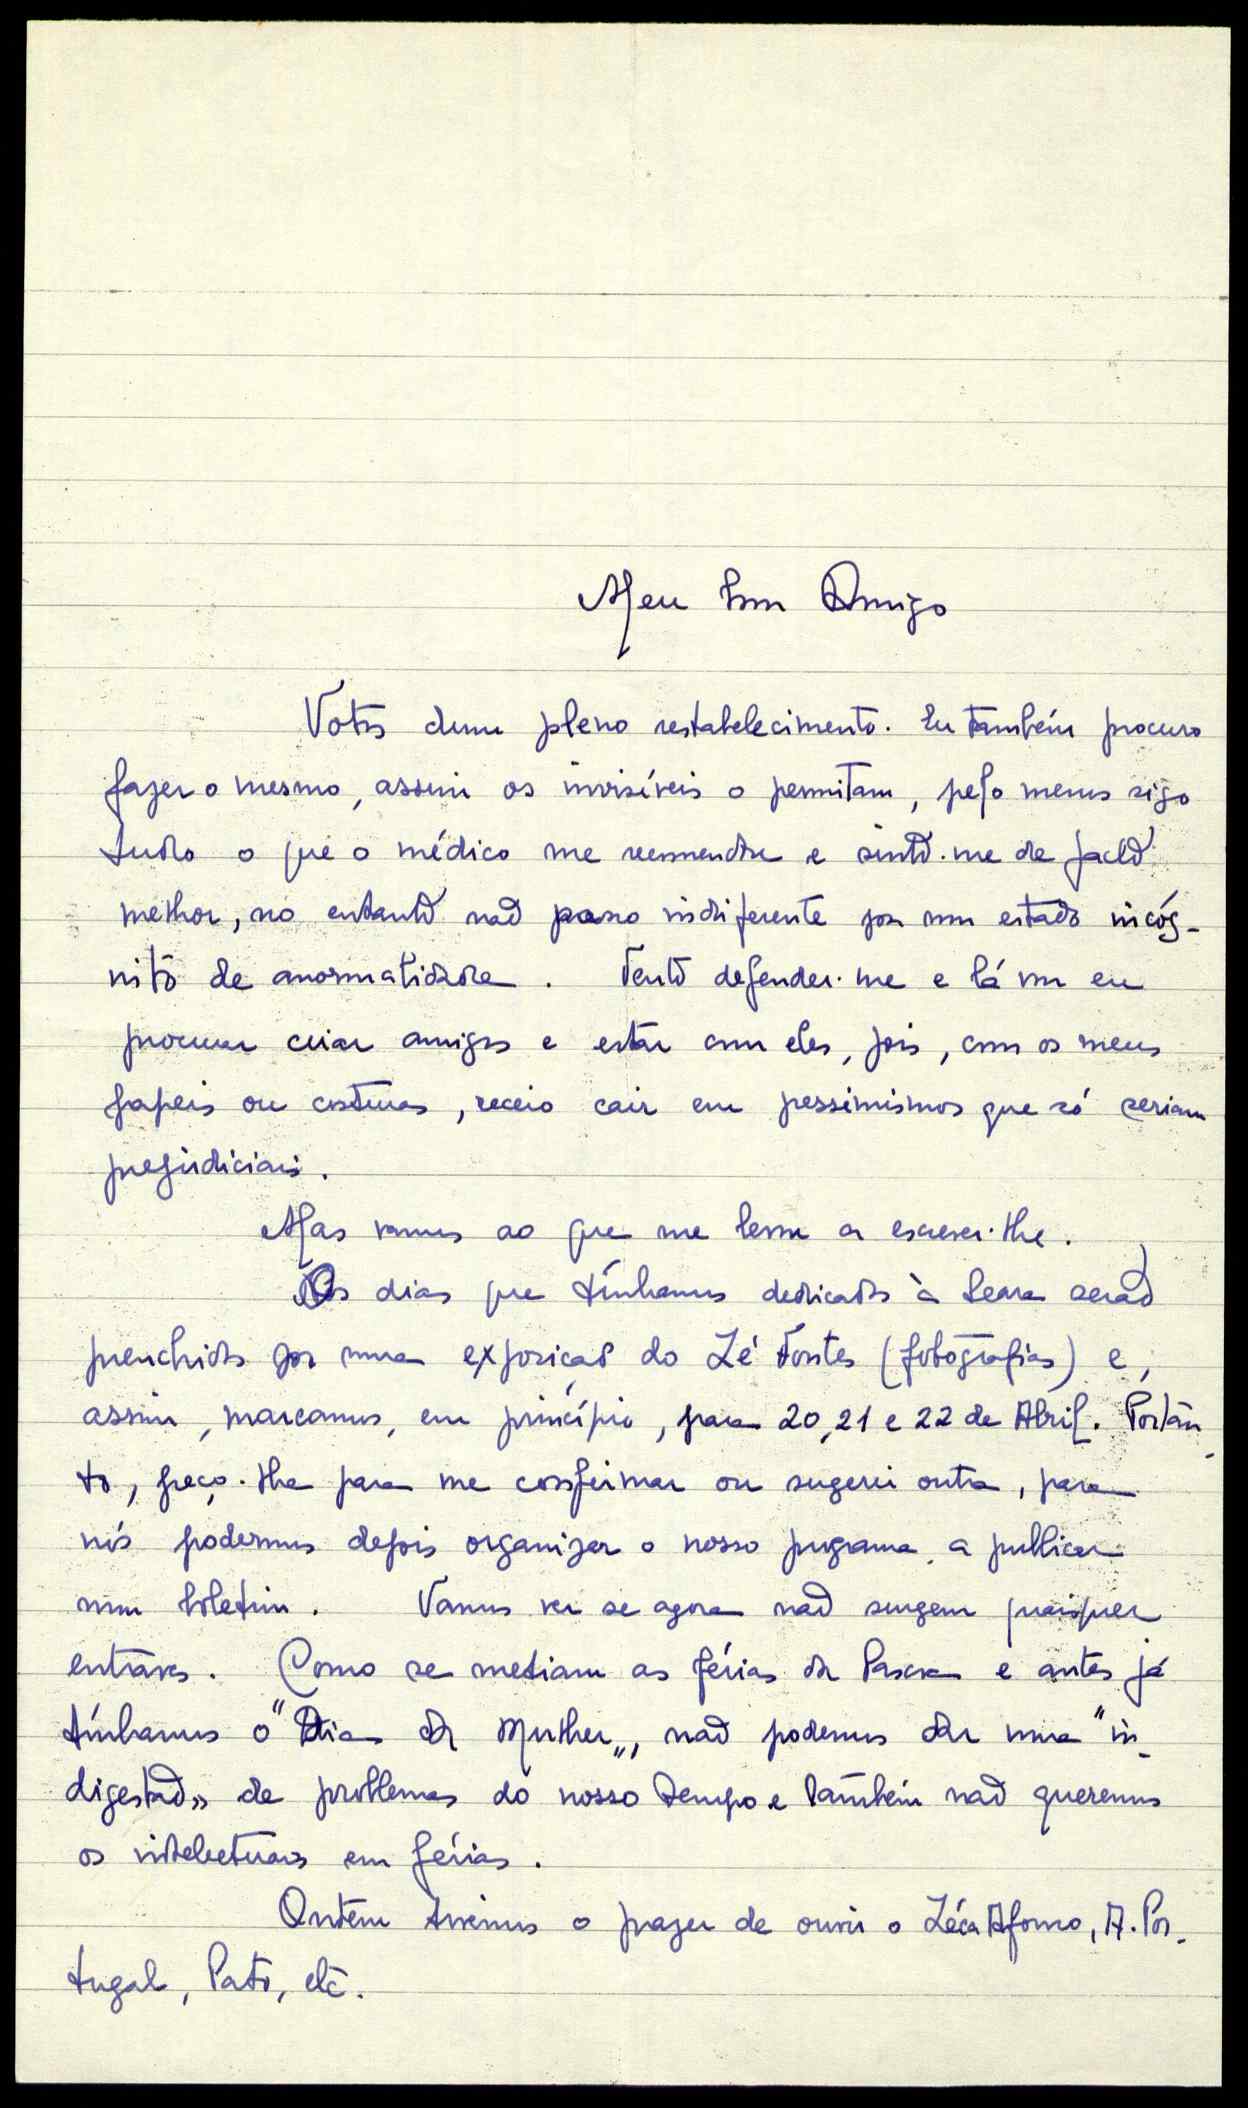 Meu bom Amigo
Votos dum pleno restabelecimento. Eu também procuro
fazer o mesmo, assim os invisíveis o permitam, pelo menos sigo
tudo o que o médico me recomendou e sinto-me de facto
melhor, no entanto não passo indiferente por um estado incóg-
nito de anormalidade. Tento defender-me e lá vou eu
procurar criar amigos e estar com eles, pois, com os meus
papeis ou costuras, receio cair em pessimismos que só seriam
prejudiciais.
Mas vamos ao que me levou a escrever-lhe.
Os dias que tínhamos dedicados à Seara serão
preenchidos por uma exposição do Zé Fontes (fotografias) e,
assim, marcamos, em princípio, para 20, 21 e 22 de Abril. Portan
to, peço-lhe para me confirmar ou sugerir outra, para
nós podermos depois organizar o nosso programa a publicar
num boletim. Vamos ver se agora não surgem quaisquer
entraves. Como se metiam as férias da Pascoa e antes já
tínhamos o "Dia da Mulher", não podemos dar uma "in-
digestão" de problemas do nosso tempo e também não queremos
os intelectuais em férias.
Ontem tivemos o prazer de ouvir o Zéca Afonso, A. Por-
tugal, Pato, etc.